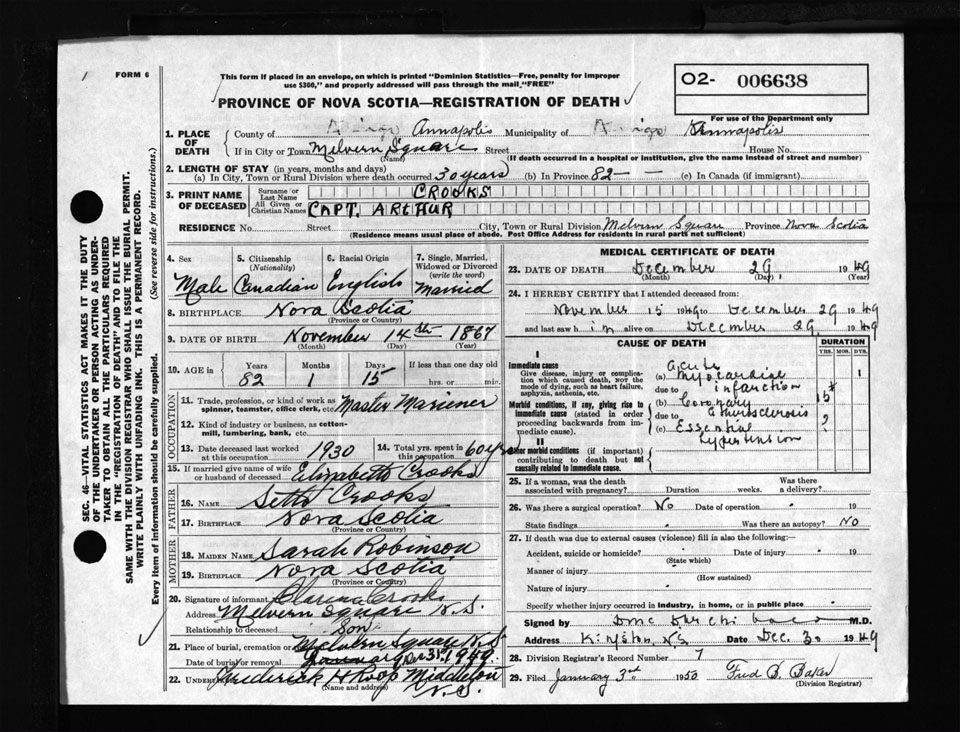 FORM 6
This form if placed in an envelope, on which is printed "Dominion Statistics—Free, penalty for improper
use $300," and properly addressed will pass through the mail "FREE"
PROVINCE OF NOVA SCOTIA—REGISTRATION OF DEATH
O2- 006638
For use of the Department only
1. PLACE OF DEATH
County of Kings Annapolis Municipality of Kings Annapolis
If in City or Town Melvern Square Street House No.
(Name) (If death occurred in a hospital or institution, give the name instead of street and number)
2. LENGTH OF STAY (in years, months and days)
(a) In City, Town or Rural Division where death occurred 30 years (b) In Province 82 — — (c) In Canada (if immigrant)
3. PRINT NAME OF DECEASED
Surname or Last Name CROOKS
All Given or Christian Names CAPT. ARTHUR
RESIDENCE No. Street City, Town or Rural Division Melvern Square Province Nova Scotia
(Residence means usual place of abode. Post Office Address for residents in rural parts not sufficient)
4. Sex 5. Citizenship (Nationality) 6. Racial Origin 7. Single, Married, Widowed or Divorced (write the word)
Male Canadian English Married
8. BIRTHPLACE Nova Scotia
(Province or Country)
9. DATE OF BIRTH November 14th 1867
(Month) (Day) (Year)
10. AGE in Years Months Days If less than one day
82 1 15 hrs. or min.
OCCUPATION
11. Trade, profession, or kind of work as
spinner, teamster, office clerk, etc. Master Mariener
12. Kind of industry or business, as cotton-
mill, lumbering, bank, etc.
13. Date deceased last worked at this occupation 1930 14. Total yrs. spent in this occupation 60 yrs
15. If married give name of wife or husband of deceased Elizabeth Crooks
FATHER
16. NAME Seth Crooks
17. BIRTHPLACE Nova Scotia
(Province or Country)
MOTHER
18. MAIDEN NAME Sarah Robinson
19. BIRTHPLACE Nova Scotia
(Province or Country)
20. Signature of informant Crooks
Address Melvern Square N.S.
Relationship to deceased Son
21. Place of burial, cremation or Melvern Square N.S
Date of burial or removal January Dec 31st, 1949
22. UNDERTAKER Frederick H Roop Middleton
(Name and address) N.S.
MEDICAL CERTIFICATE OF DEATH
23. DATE OF DEATH December 29 1949
(Month) (Day) (Year)
24. I HEREBY CERTIFY that I attended deceased from:
November 15 1949 to December 29 1949
and last saw him alive on December 29, 1949
CAUSE OF DEATH DURATION
YRS. MOS. DYS.
I
Immediate cause
Give disease, injury or complica-
tion which caused death, NOT the
mode of dying, such as heart failure,
asphyxia, asthenia, etc.
(a) Acute Myocardial 1
due to infarction
Morbid conditions, if any, giving rise to
immediate cause (stated in order
proceeding backwards from im-
mediate cause).
(b) Coronary 15
due to
(c) Essential ?
hypertension
II
Other morbid conditions (if important)
contributing to death but not
causally related to immediate cause.
25. If a woman, was the death
associated with pregnancy? Duration weeks. Was there a delivery?
26. Was there a surgical operation? No Date of operation 19
State findings Was there an autopsy? No
27. If death was due to external causes (violence) fill in also the following:—
Accident, suicide or homicide? Date of injury 19
(State which)
Manner of injury
(How sustained)
Nature of injury
Specify whether injury occurred in industry, in home, or in public place
Signed by M.D.
Address Kingston, N.S. Date Dec. 30 1949
28. Division Registrar's Record Number 7
29. Filed January 3rd 1950 Fred B. Baker
(Division Registrar)
SEC. 46—VITAL STATISTICS ACT MAKES IT THE DUTY
OF THE UNDERTAKER OR PERSON ACTING AS UNDER-
TAKER TO OBTAIN ALL THE PARTICULARS REQUIRED
IN THE "REGISTRATION OF DEATH" AND TO FILE THE
SAME WITH THE DIVISION REGISTRAR WHO SHALL ISSUE THE BURIAL PERMIT.
WRITE PLAINLY WITH UNFADING INK. THIS IS A PERMANENT RECORD.
Every item of information should be carefully supplied. (See reverse side for instructions.)